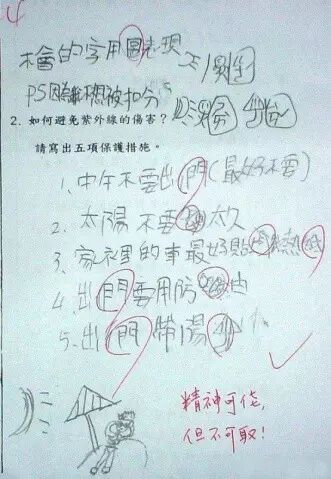 不會的字用圖表現
PS因為 不想被扣分
2. 如何避免紫外線的傷害?
請寫出五項保護措施。
1、中午不要出門(最好不要)
2. 太陽不要 太久
3、家裡的車最好貼 熱
4. 出門要用防 油
5、出門帶陽
精神可佳,
但不可取!